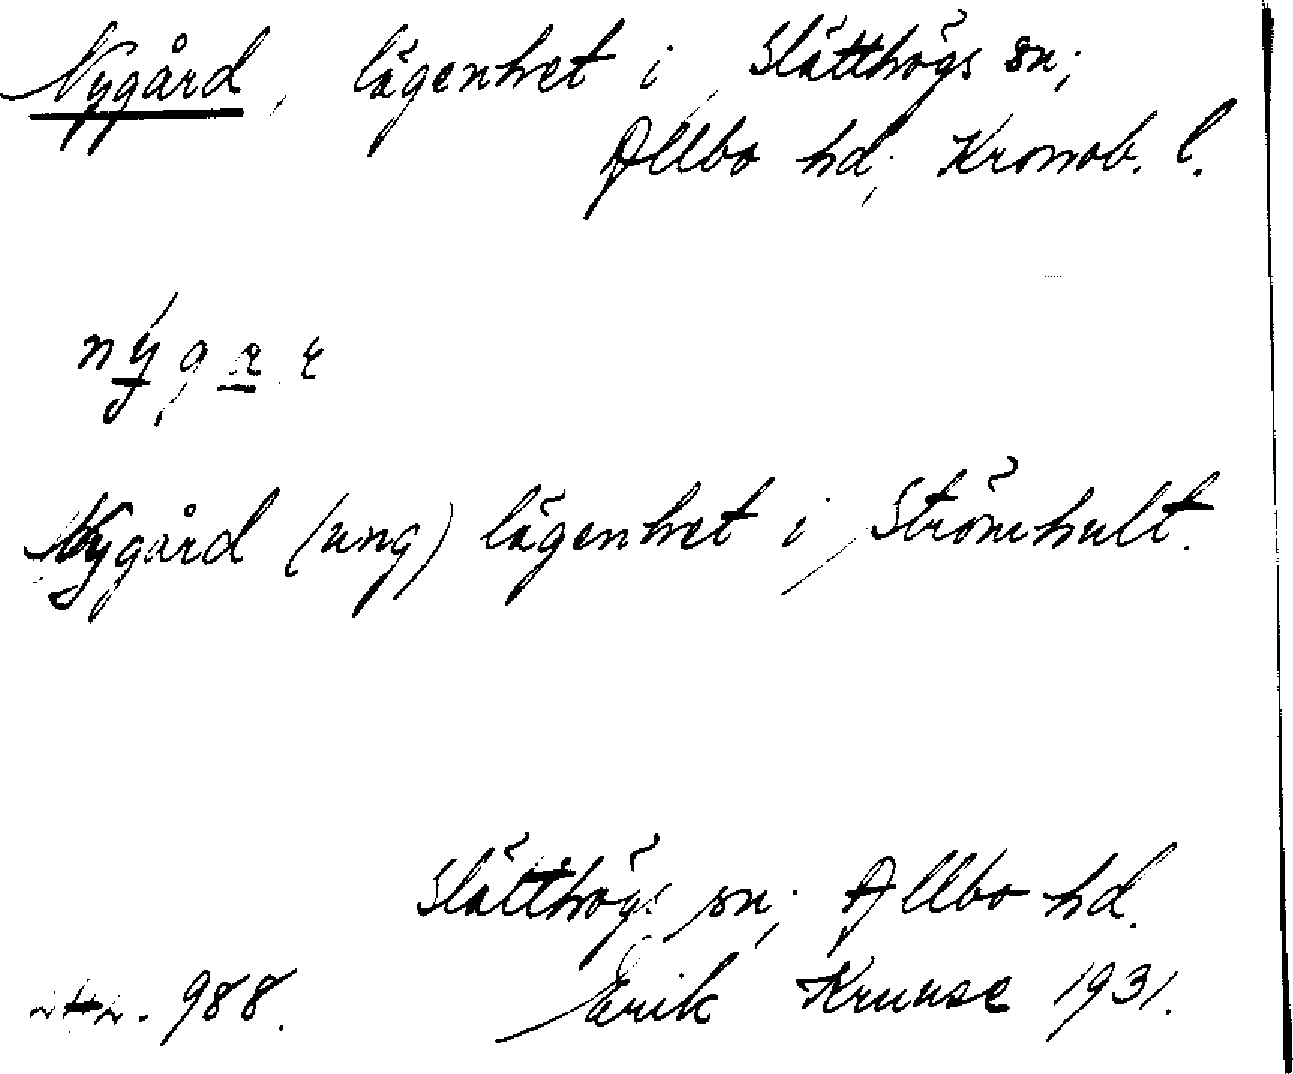 Nygård, lägenhet i Slätthögs sn;
Allbo hd; Kronob. l.
Nygård (ung) lägenhet i Strömhult.
Slätthögs sn; Allbo hd.
988. Erik Kruuse 1931.